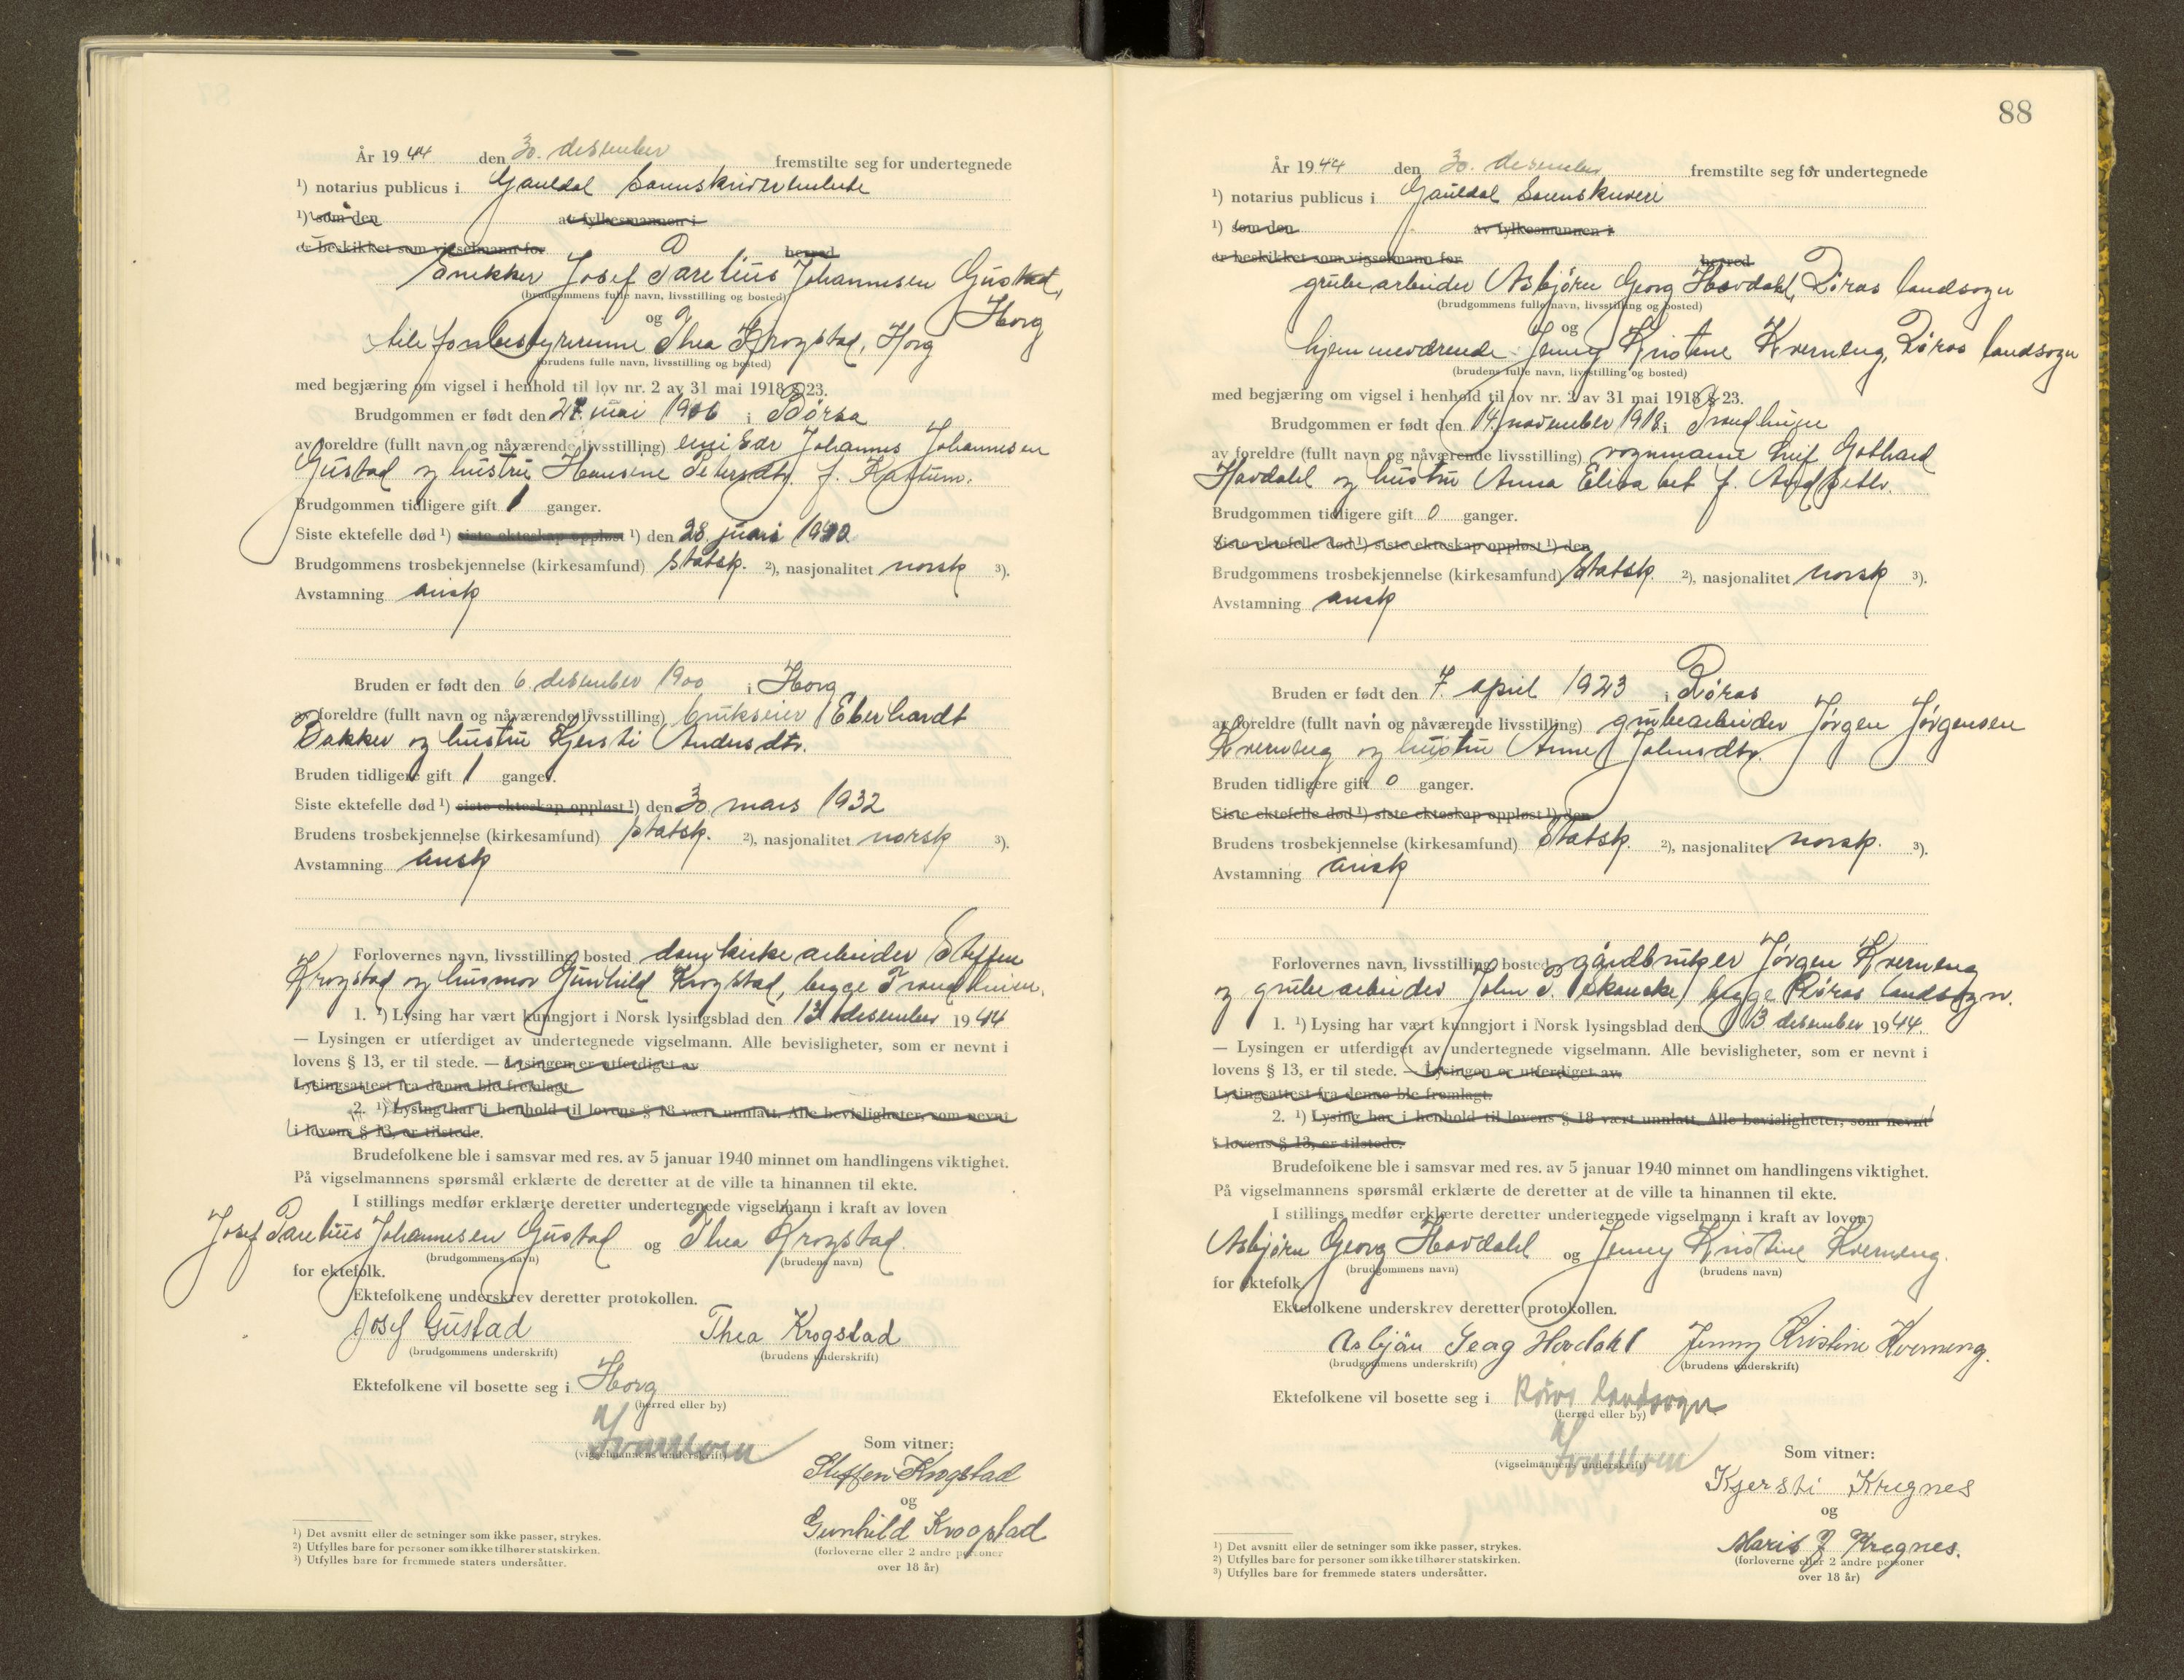 År 1944 den 30. desember fremstilte seg for undertegnede
¹) notarius publicus i Gauldal Sorenskriverembete
¹) som den av fylkesmannen i
er beskikket som vigselmann for herred
Snekker Josef Parelius Johannesen Gustad,
(brudgommens fulle navn, livsstilling og bosted)
Horg
og
telefonbestyrerinne Thea Krogstad, Horg
(brudens fulle navn, livsstilling og bosted)
med begjæring om vigsel i henhold til lov nr. 2 av 31 mai 1918 § 23.
Brudgommen er født den mai i Børsa
av foreldre (fullt navn og nåværende livsstilling) Johannes Johannesen
Gustad og hustru Hansine Petersdtr. f. Kattum.
Brudgommen tidligere gift 1 ganger.
Siste ektefelle død ¹) siste ekteskap oppløst ¹) den 28.
Brudgommens trosbekjennelse (kirkesamfund) Statsk. ²), nasjonalitet norsk ³).
Avstamning arisk
Bruden er født den 6. desember 1900 i Horg
av foreldre (fullt navn og nåværende livsstilling) brukseier Eberhardt
Bakken og hustru Kjersti Andersdtr.
Bruden tidligere gift 1 ganger.
Siste ektefelle død ¹) siste ekteskap oppløst ¹) den 30. mars 1932
Brudens trosbekjennelse (kirkesamfund) statsk. ²), nasjonalitet norsk ³).
Avstamning arisk
Forlovernes navn, livsstilling bosted domkirkearbeider Steffen
Krogstad og husmor Gunhild Krogstad, begge Trondheim.
1. ¹) Lysing har vært kunngjort i Norsk lysingsblad den 13 desember 1944
— Lysingen er utferdiget av undertegnede vigselmann. Alle bevisligheter, som er nevnt i
lovens § 13, er til stede. — Lysingen er utferdiget av
Lysingsattest fra denne ble fremlagt.
2. ¹) Lysing har i henhold til lovens § 18 vært unnlatt. Alle bevisligheter, som nevnt
i lovens § 13, er tilstede.
Brudefolkene ble i samsvar med res. av 5 januar 1940 minnet om handlingens viktighet.
På vigselmannens spørsmål erklærte de deretter at de ville ta hinannen til ekte.
I stillings medfør erklærte deretter undertegnede vigselmann i kraft av loven
Josef Parelius Johannesen Gustad og Thea Krogstad.
(brudgommens navn) (brudens navn)
for ektefolk.
Ektefolkene underskrev deretter protokollen.
Josef Gustad Thea Krogstad
(brudgommens underskrift) (brudens underskrift)
Ektefolkene vil bosette seg i Horg
(herred eller by)
(vigselmannens underskrift)
Som vitner:
Steffen Krogstad
og
Gunhild Krogstad
(forloverne eller 2 andre personer
over 18 år)
¹) Det avsnitt eller de setninger som ikke passer, strykes.
²) Utfylles bare for personer som ikke tilhører statskirken.
³) Utfylles bare for fremmede staters undersåtter.
88
År 1944 den 30. desember fremstilte seg for undertegnede
¹) notarius publicus i Gauldal Sorenskriveri
¹) som den av fylkesmannen i
er beskikket som vigselmann for herred
grubearbeider Asbjørn Georg Hovdahl, Røros landsogn
(brudgommens fulle navn, livsstilling og bosted)
og
hjemmeværende Jenny Kristine Kverneng, Røros landsogn
(brudens fulle navn, livsstilling og bosted)
med begjæring om vigsel i henhold til lov nr. 2 av 31 mai 1918 § 23.
Brudgommen er født den 14. november 1918 i Trondheim
av foreldre (fullt navn og nåværende livsstilling) vognmann Leif Gotthard
Hovdahl og hustru Anna Elisabet f.
Brudgommen tidligere gift 0 ganger.
Siste ektefelle død ¹) siste ekteskap oppløst ¹) den
Brudgommens trosbekjennelse (kirkesamfund) Statsk. ²), nasjonalitet norsk ³).
Avstamning arisk
Bruden er født den 7. april 1923 i Røros
av foreldre (fullt navn og nåværende livsstilling) grubearbeider Jørgen Jørgensen
Kverneng og hustru Anne Johnsdtr.
Bruden tidligere gift 0 ganger.
Siste ektefelle død ¹) siste ekteskap oppløst ¹) den
Brudens trosbekjennelse (kirkesamfund) Statsk. ²), nasjonalitet norsk. ³).
Avstamning arisk
Forlovernes navn, livsstilling bosted gårdbruker Jørgen Kverneng
og grubearbeider John J. Skancke, begge Røros landsogn.
1. ¹) Lysing har vært kunngjort i Norsk lysingsblad den 13 desember 1944.
— Lysingen er utferdiget av undertegnede vigselmann. Alle bevisligheter, som er nevnt i
lovens § 13, er til stede. — Lysingen er utferdiget av
Lysingsattest fra denne ble fremlagt.
2. ¹) Lysing har i henhold til lovens § 18 vært unnlatt. Alle bevisligheter, som nevnt
i lovens § 13, er tilstede.
Brudefolkene ble i samsvar med res. av 5 januar 1940 minnet om handlingens viktighet.
På vigselmannens spørsmål erklærte de deretter at de ville ta hinannen til ekte.
I stillings medfør erklærte deretter undertegnede vigselmann i kraft av loven
Asbjørn Georg Hovdahl og Jenny Kristine Kverneng.
(brudgommens navn) (brudens navn)
for ektefolk.
Ektefolkene underskrev deretter protokollen.
Asbjørn Georg Hovdahl Jenny Kristine Kverneng.
(brudgommens underskrift) (brudens underskrift)
Ektefolkene vil bosette seg i Røros landsogn
(herred eller by)
(vigselmannens underskrift)
Som vitner:
Kjersti Kregnes
og
Marit J. Kregnes.
(forloverne eller 2 andre personer
over 18 år)
¹) Det avsnitt eller de setninger som ikke passer, strykes.
²) Utfylles bare for personer som ikke tilhører statskirken.
³) Utfylles bare for fremmede staters undersåtter.